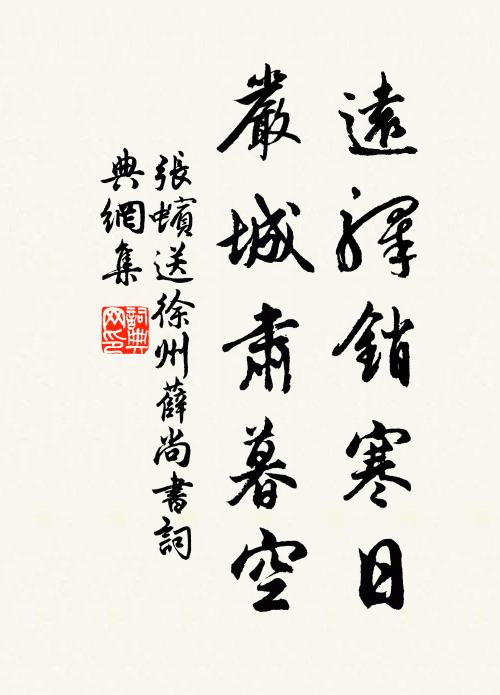 遠驛銷寒日
嚴城肅暮空
張蠙送徐州薛尚書詞
典網集
詞典
网印